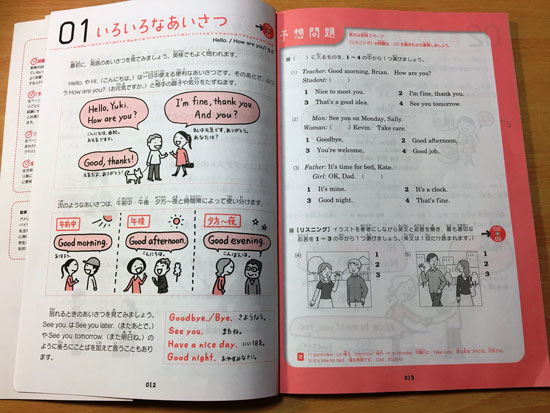 01 いろいろなあいさつ
Hello. / How are you? など
最初に、英語のあいさつを見てみましょう。英検でもよく問われます。
Hello. や Hi.(こんにちは。)は一日中使える便利なあいさつです。そのあとで、
How are you?(お元気ですか。)と相手の調子や気分をたずねます。
Hello, Yuki.
How are you?
こんにちは、由紀。
お元気ですか。
I'm fine, thank you.
And you?
私は元気です、ありがとう。
あなたは?
Good, thanks!
元気だよ、ありがとう!
次のようなあいさつは、午前中・午後・夕方〜夜と時間帯によって使い分けます。
午前中
Good morning.
おはよう。
午後
Good afternoon.
こんにちは。
夕方〜夜
Good evening.
こんばんは。
別れるときのあいさつを見てみましょう。
See you. は See you later.(またあとで。)
や See you tomorrow.(また明日ね。)の
ように後ろにことばを加えて言うこともあり
ます。
Goodbye./Bye. さようなら。
See you. またね。
Have a nice day. いい1日を。
Good night. おやすみなさい。
012
予想問題
( )に入るものを、1〜4の中から1つ選びましょう。
(1) Teacher: Good morning, Brian. How are you?
Student: ( )
1 Nice to meet you. 2 I'm fine, thank you.
3 That's a good idea. 4 See you tomorrow.
(2) Man: See you on Monday, Sally.
Woman: ( ) Kevin. Take care.
1 Goodbye, 2 Good afternoon,
3 You're welcome, 4 Good job,
(3) Father: It's time for bed, Kate.
Girl: OK, Dad. ( )
1 It's mine. 2 It's a clock.
3 Good night. 4 That's fine.
【リスニング】イラストを参考にしながら英文と応答を聞き、最も適切な
応答を1〜3の中から1つ選びましょう。(英文は1回だけ読まれます。)
(4) 1
2
3
(5) 1
2
3
013